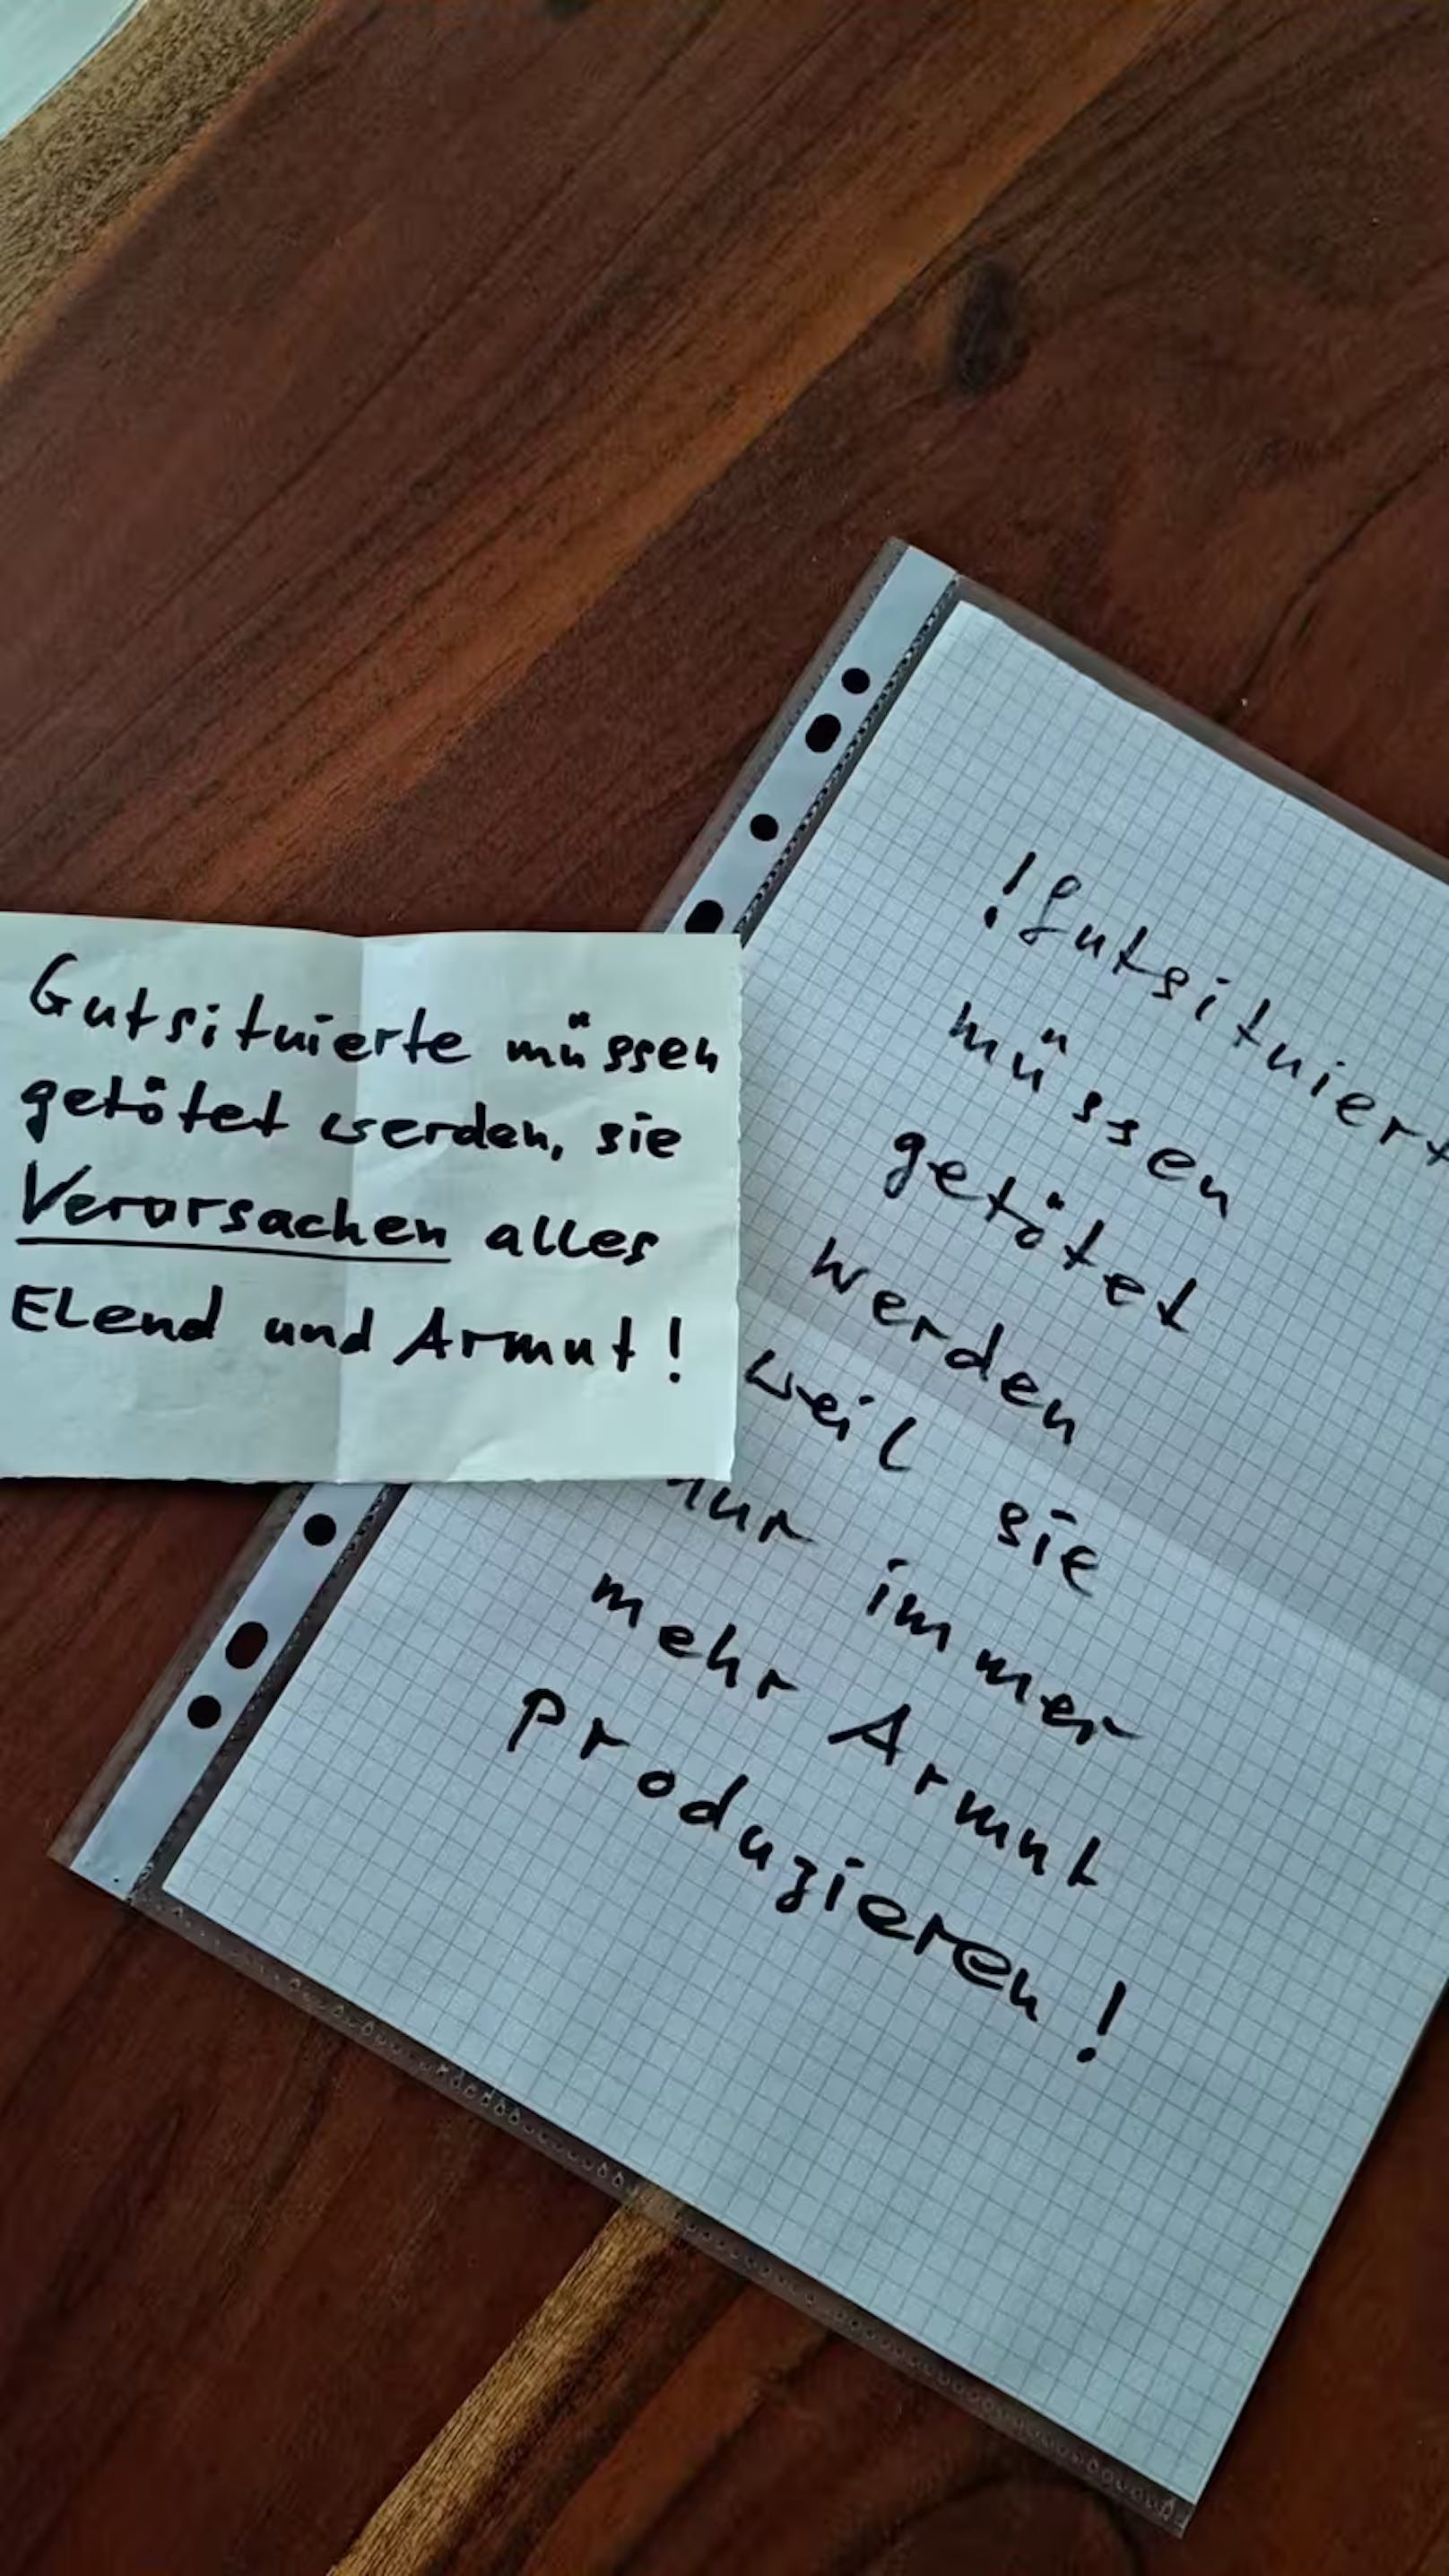 Gutsituierte müssen
getötet werden, sie
Verursachen alles
Elend und Armut!
!Gutsituiert
müssen
getötet
werden
weil sie
nur immer
mehr Armut
produzieren!